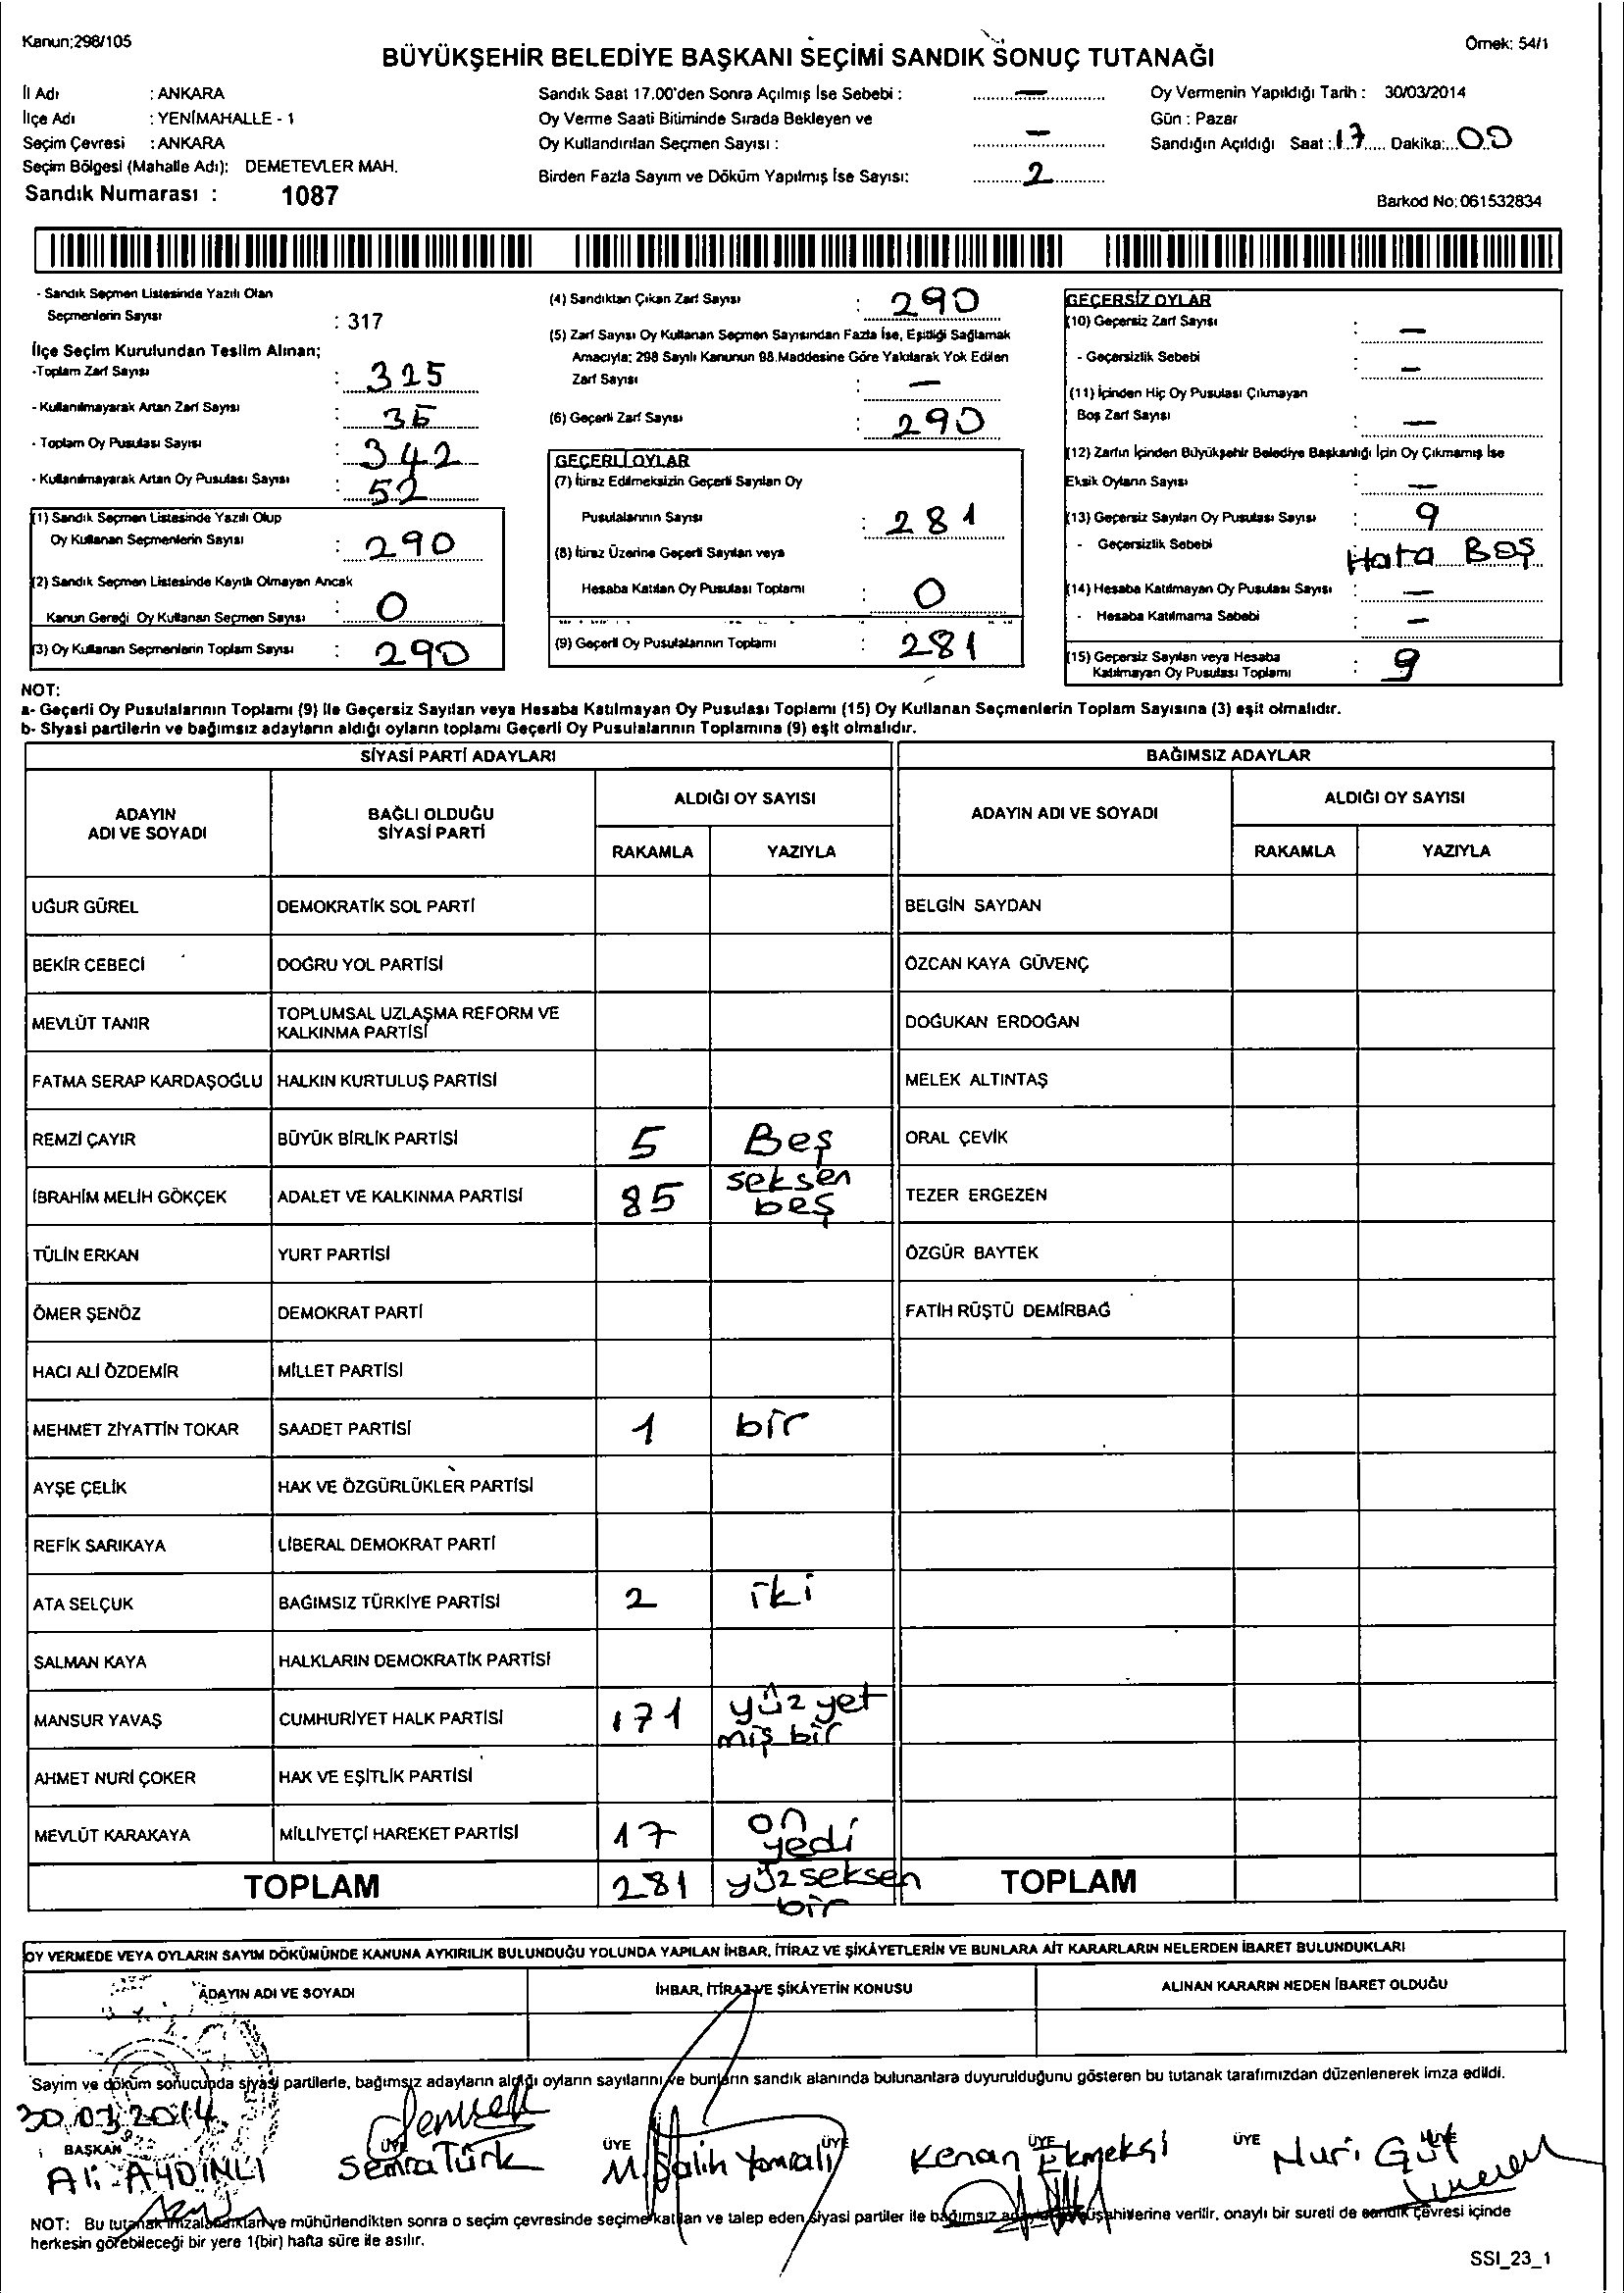 Kanun;298/105
Örnek: 54/1
BÜYÜKŞEHİR BELEDİYE BAŞKANI SEÇİMİ SANDIK SONUÇ TUTANAĞI
İl Adı : ANKARA
İlçe Adı : YENİMAHALLE - 1
Seçim Çevresi : ANKARA
Seçim Bölgesi (Mahalle Adı): DEMETEVLER MAH.
Sandık Numarası : 1087
Sandık Saat 17.00'den Sonra Açılmış İse Sebebi : —
Oy Verme Saati Bitiminde Sırada Bekleyen ve
Oy Kullandırılan Seçmen Sayısı : —
Birden Fazla Sayım ve Döküm Yapılmış İse Sayısı: 2
Oy Vermenin Yapıldığı Tarih : 30/03/2014
Gün : Pazar
Sandığın Açıldığı Saat : 17 Dakika: 00
Barkod No: 061532834
- Sandık Seçmen Listesinde Yazılı Olan
Seçmenlerin Sayısı : 317
İlçe Seçim Kurulundan Teslim Alınan;
-Toplam Zarf Sayısı : 325
- Kullanılmayarak Artan Zarf Sayısı : 35
- Toplam Oy Pusulası Sayısı : 342
- Kullanılmayarak Artan Oy Pusulası Sayısı : 52
(1) Sandık Seçmen Listesinde Yazılı Olup
Oy Kullanan Seçmenlerin Sayısı : 290
(2) Sandık Seçmen Listesinde Kayıtlı Olmayan Ancak
Kanun Gereği Oy Kullanan Seçmen Sayısı : 0
(3) Oy Kullanan Seçmenlerin Toplam Sayısı : 290
(4) Sandıktan Çıkan Zarf Sayısı : 290
(5) Zarf Sayısı Oy Kullanan Seçmen Sayısından Fazla İse, Eşitliği Sağlamak
Amacıyla; 298 Sayılı Kanunun 98.Maddesine Göre Yakılarak Yok Edilen
Zarf Sayısı : —
(6) Geçerli Zarf Sayısı : 290
GEÇERLİ OYLAR
(7) İtiraz Edilmeksizin Geçerli Sayılan Oy
Pusulalarının Sayısı : 281
(8) İtiraz Üzerine Geçerli Sayılan veya
Hesaba Katılan Oy Pusulası Toplamı : 0
(9) Geçerli Oy Pusulalarının Toplamı : 281
GEÇERSİZ OYLAR
(10) Geçersiz Zarf Sayısı : —
- Geçersizlik Sebebi : —
(11) İçinden Hiç Oy Pusulası Çıkmayan
Boş Zarf Sayısı : —
(12) Zarfın İçinden Büyükşehir Belediye Başkanlığı İçin Oy Çıkmamış İse
Eksik Oyların Sayısı : —
(13) Geçersiz Sayılan Oy Pusulası Sayısı : 9
- Geçersizlik Sebebi Hata Boş
(14) Hesaba Katılmayan Oy Pusulası Sayısı : —
- Hesaba Katılmama Sebebi : —
(15) Geçersiz Sayılan veya Hesaba
Katılmayan Oy Pusulası Toplamı : 9
NOT:
a- Geçerli Oy Pusulalarının Toplamı (9) ile Geçersiz Sayılan veya Hesaba Katılmayan Oy Pusulası Toplamı (15) Oy Kullanan Seçmenlerin Toplam Sayısına (3) eşit olmalıdır.
b- Siyasi partilerin ve bağımsız adayların aldığı oyların toplamı Geçerli Oy Pusulalarının Toplamına (9) eşit olmalıdır.
SİYASİ PARTİ ADAYLARI BAĞIMSIZ ADAYLAR
ADAYIN
ADI VE SOYADI
BAĞLI OLDUĞU
SİYASİ PARTİ
ALDIĞI OY SAYISI
RAKAMLA YAZIYLA
ADAYIN ADI VE SOYADI
ALDIĞI OY SAYISI
RAKAMLA YAZIYLA
UĞUR GÜREL DEMOKRATİK SOL PARTİ BELGİN SAYDAN
BEKİR CEBECİ DOĞRU YOL PARTİSİ ÖZCAN KAYA GÜVENÇ
MEVLÜT TANIR TOPLUMSAL UZLAŞMA REFORM VE
KALKINMA PARTİSİ DOĞUKAN ERDOĞAN
FATMA SERAP KARDAŞOĞLU HALKIN KURTULUŞ PARTİSİ MELEK ALTINTAŞ
REMZİ ÇAYIR BÜYÜK BİRLİK PARTİSİ 5 Beş ORAL ÇEVİK
İBRAHİM MELİH GÖKÇEK ADALET VE KALKINMA PARTİSİ 85 seksen
beş TEZER ERGEZEN
TÜLİN ERKAN YURT PARTİSİ ÖZGÜR BAYTEK
ÖMER ŞENÖZ DEMOKRAT PARTİ FATİH RÜŞTÜ DEMİRBAĞ
HACI ALİ ÖZDEMİR MİLLET PARTİSİ
MEHMET ZİYATTİN TOKAR SAADET PARTİSİ 1 bir
AYŞE ÇELİK HAK VE ÖZGÜRLÜKLER PARTİSİ
REFİK SARIKAYA LİBERAL DEMOKRAT PARTİ
ATA SELÇUK BAĞIMSIZ TÜRKİYE PARTİSİ 2 iki
SALMAN KAYA HALKLARIN DEMOKRATİK PARTİSİ
MANSUR YAVAŞ CUMHURİYET HALK PARTİSİ 171 yüz yet
miş bir
AHMET NURİ ÇOKER HAK VE EŞİTLİK PARTİSİ
MEVLÜT KARAKAYA MİLLİYETÇİ HAREKET PARTİSİ 17 on
yedi
TOPLAM 281 yüzseksen
bir TOPLAM
OY VERMEDE VEYA OYLARIN SAYIM DÖKÜMÜNDE KANUNA AYKIRILIK BULUNDUĞU YOLUNDA YAPILAN İHBAR, İTİRAZ VE ŞİKÂYETLERİN VE BUNLARA AİT KARARLARIN NELERDEN İBARET BULUNDUKLARI
ADAYIN ADI VE SOYADI İHBAR, İTİRAZ VE ŞİKÂYETİN KONUSU ALINAN KARARIN NEDEN İBARET OLDUĞU
Sayim ve döküm sonucunda siyasi partilerle, bağımsız adayların aldığı oyların sayılarını ve bunların sandık alanında bulunanlara duyurulduğunu gösteren bu tutanak tarafımızdan düzenlenerek imza edildi.
30.03.2014
BAŞKAN ÜYE ÜYE ÜYE ÜYE ÜYE ÜYE
Ali AYDINLI Semra Türk M. Salih Kenan Ekmeksi Nuri Gül
NOT: Bu tutanak imzalandıktan ve mühürlendikten sonra o seçim çevresinde seçime katılan ve talep eden siyasi partiler ile bağımsız müşahitlerine verilir, onaylı bir sureti de sandık çevresi içinde
herkesin görebileceği bir yere 1(bir) hafta süre ile asılır.
SSI_23_1